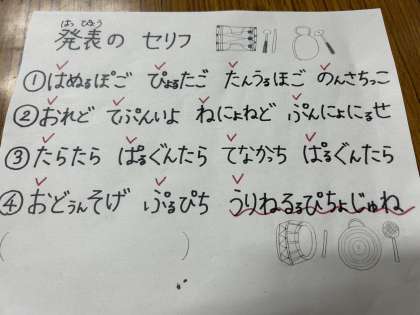 はっぴょう
発表の セリフ
①はぬるぽご ぴょるたご たんうるほご のんさちっこ
②おれど てぷんいよ ねにょねど ぷんにょにるせ
③たらたら ぱるぐんたら てなかっち ぱるぐんたら
④おどぅんそげ ぷるぴち うりねるるぴちょじゅね
( )